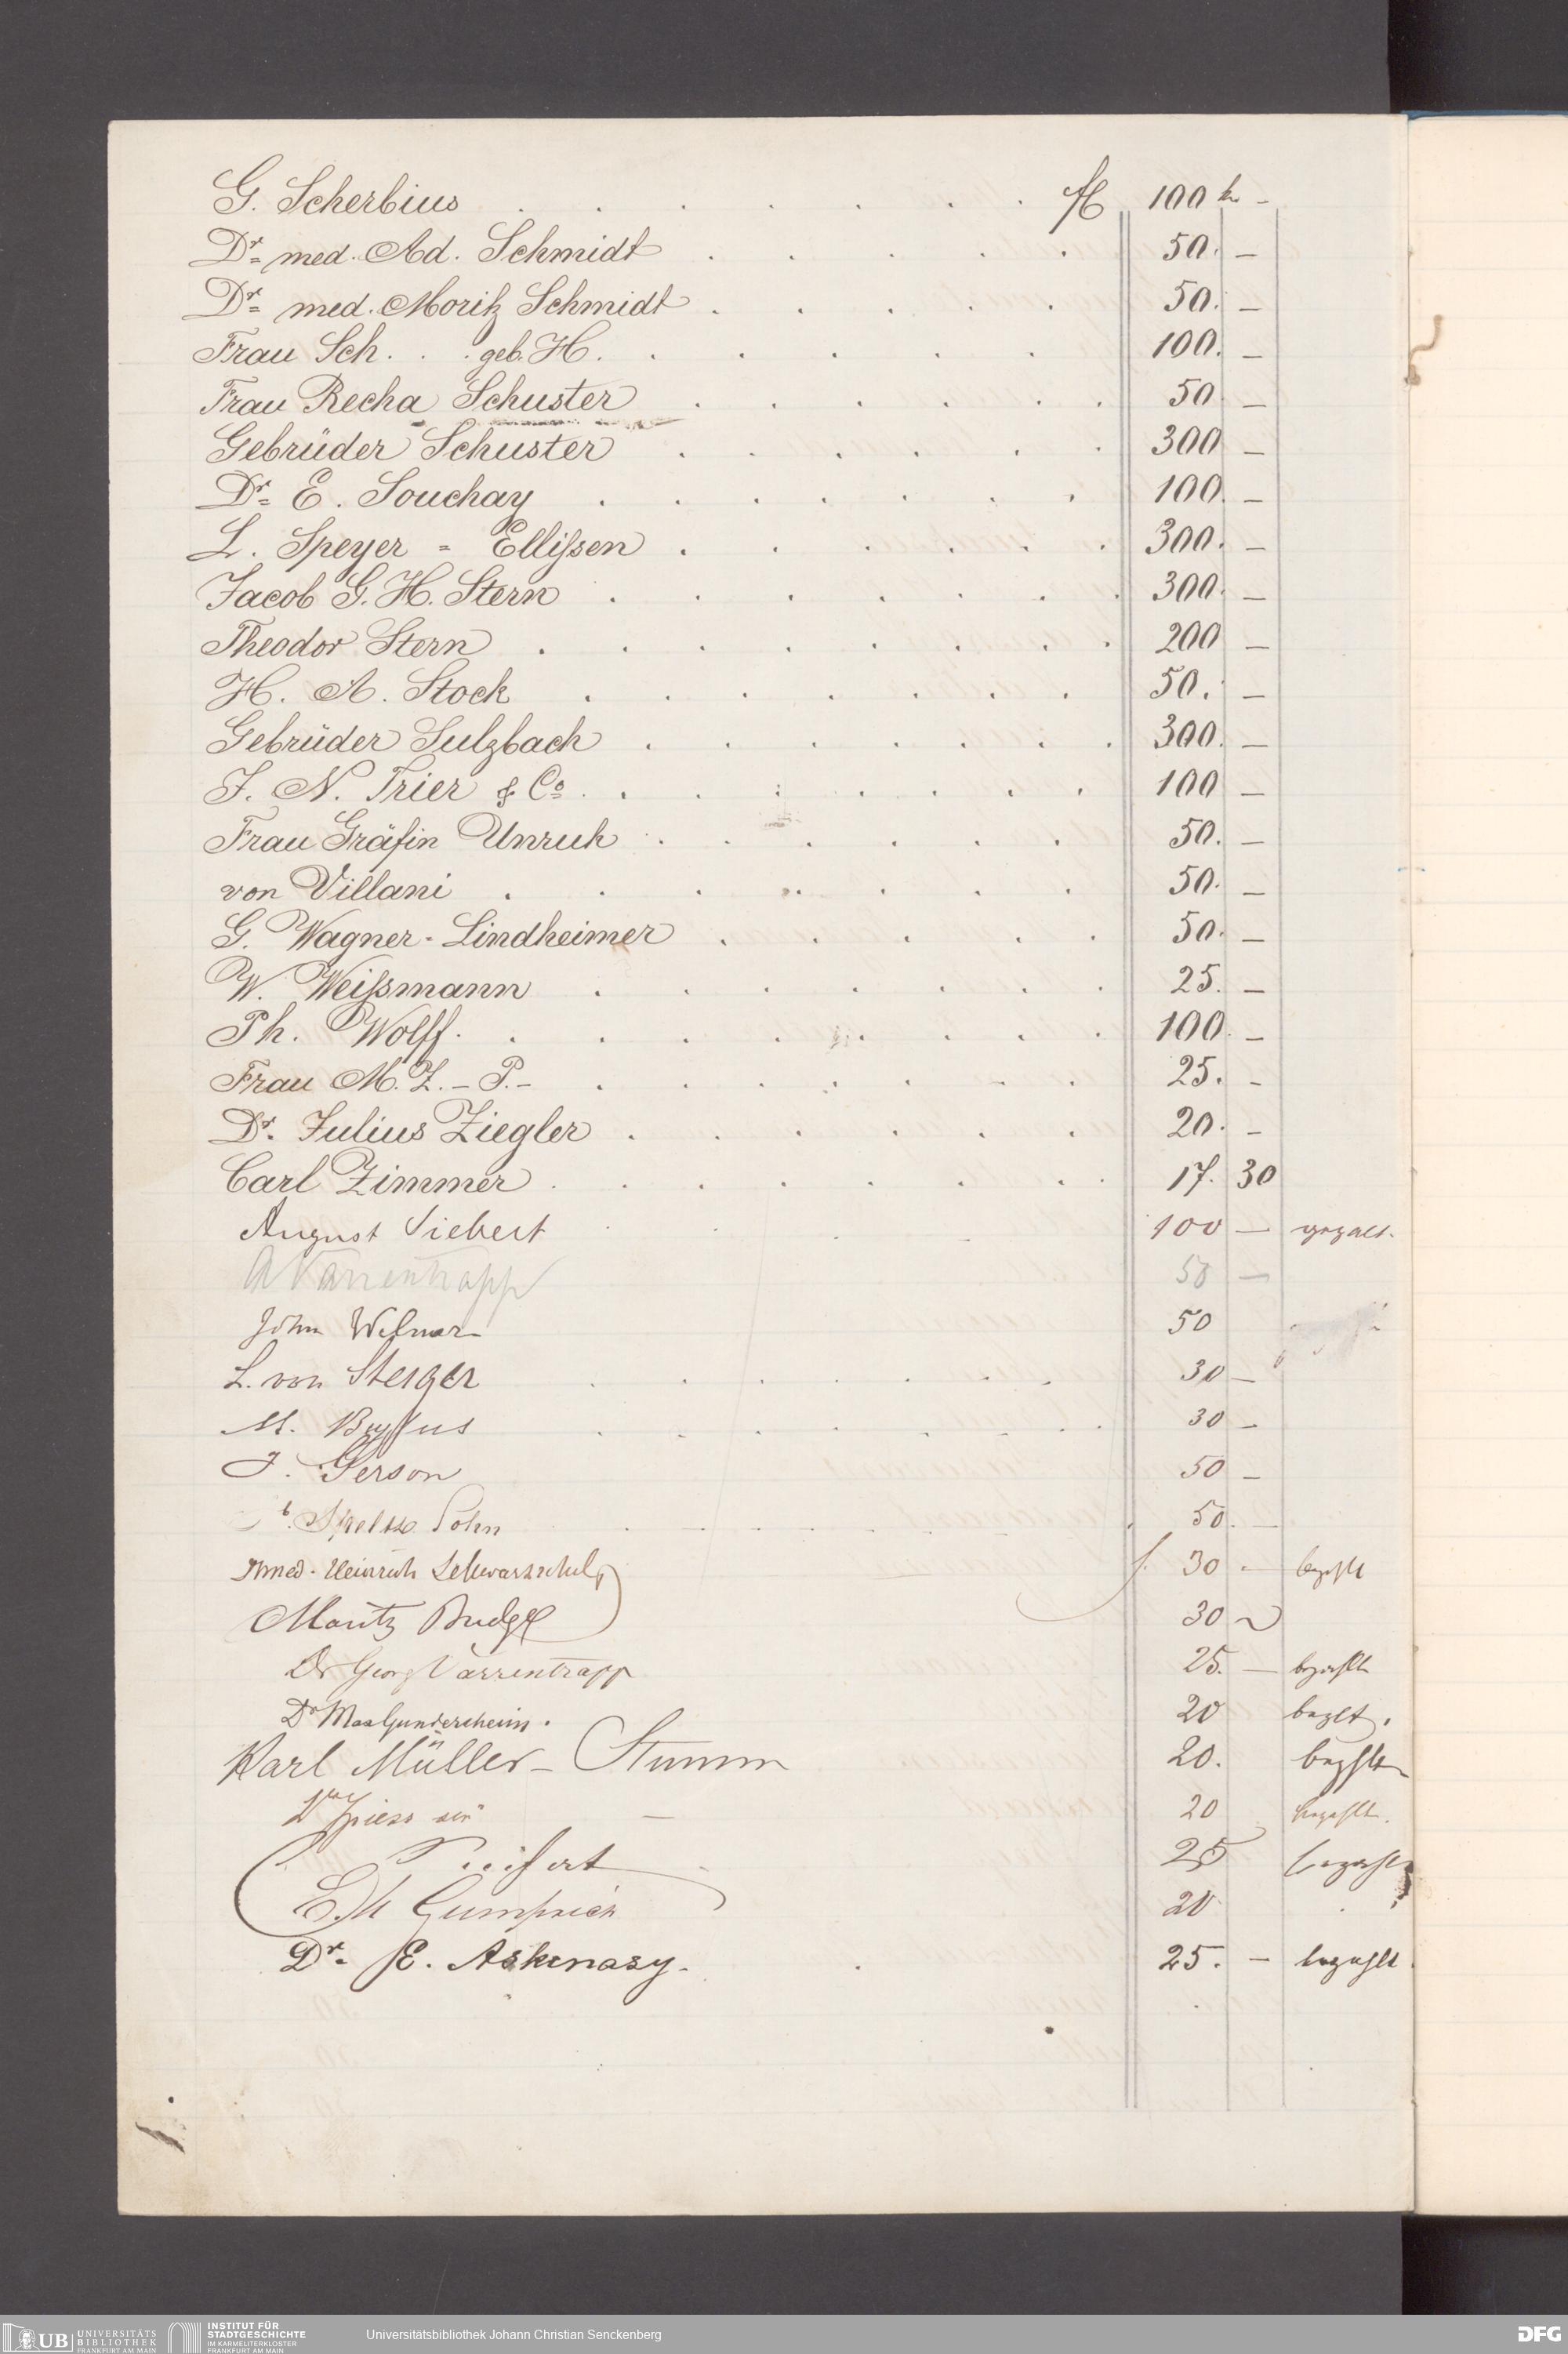 G. Scherbius . . . . . . . fl 100 kr –
Dr. med. Ad. Schmidt . . . . . 50. –
Dr. med. Moritz Schmidt . . . . . 50. –
Frau Sch. . . geb. H. . . . . . 100. –
Frau Recha Schuster . . . . . . 50 –
Gebrüder Schuster . . . . . . 300 –
Dr. E. Souchay . . . . . . . 100. –
L. Speyer = Ellißen . . . . . . 300. –
Jacob S. H. Stern . . . . . . . 300. –
Theodor Stern . . . . . . . . 200 –
H. A. Stock . . . . . . . 50. –
Gebrüder Sulzbach . . . . . . . 300. –
J. N. Trier & Co. . . . . . . . 100 –
Frau Gräfin Unruh . . . . . . 50. –
von Villani . . . . . . . 50. –
G. Wagner-Lindheimer . . . . . 50. –
W. Weißmann . . . . . . . 25. –
Ph. Wolff. . . . . . . . 100. –
Frau M. Z. – P. – . . . . . . 25. –
Dr. Julius Ziegler . . . . . . 20. –
Carl Zimmer . . . . . . . . 17. 30
August Siebert 100 –
A Varrentrapp 50 –
John 50
L. von Steiger . . . . . . . 30 –
M. 30 –
J. Gerson 50 –
Sohn 50. –
Dr med. Heinrich f. 30 – bezahlt
Moritz Budge 30
Dr Georg Varrentrapp 25. – bezahlt
Dr Max Gundersheim. 20 bezlt.
Karl Müller – Stumm 20. bezahlt
Dr Spiess sen 20 bezahlt.
25 bezahlt
Gumprich 20
Dr. E. Askenasy. 25. – bezahlt
UB UNIVERSITÄTS BIBLIOTHEK FRANKFURT AM MAIN
INSTITUT FÜR STADTGESCHICHTE IM KARMELITERKLOSTER FRANKFURT AM MAIN
Universitätsbibliothek Johann Christian Senckenberg
DFG